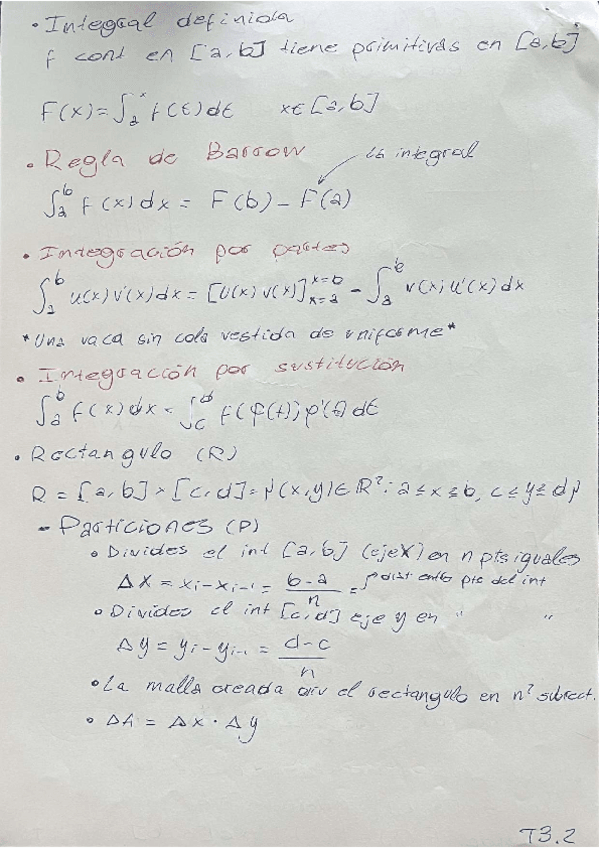 • Integral definida
f cont en [a,b] tiene primitivas en [a,b]
F(x)=∫ₐˣ f(t)dt x∈[a,b]
• Regla de Barrow
la integral
∫ₐᵇ f(x)dx = F(b) – F(a)
• Integración por partes
∫ₐᵇ u(x)v'(x)dx = [u(x)v(x)]ₓ₌ₐˣ⁼ᵇ – ∫ₐᵇ v(x)u'(x)dx
*Una vaca sin cola vestida de uniforme*
• Integración por sustitución
∫ₐᵇ f(x)dx = ∫_c^d f(φ(t))φ'(t)dt
• Rectangulo (R)
R = [a,b] × [c,d] = {(x,y)∈ℝ²: a≤x≤b, c≤y≤d}
– Particiones (P)
• Divides el int [a,b] (eje X) en n pts iguales
Δx = xᵢ – xᵢ₋₁ = (b-a)/n = dist entre pts del int
• Divides el int [c,d] eje y en " "
Δy = yᵢ – yᵢ₋₁ = (d-c)/n
• La malla creada div el rectangulo en n² subrect.
• ΔA = Δx · Δy
T3.2